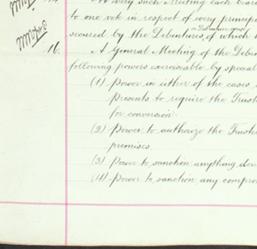 At every such Meeting each
to one vote in respect of every
secured by the Debentures of which
16. A General Meeting of the
following powers exercisable by special
(1) Power in either of the cases
Presents to require the
for conversion.
(2) Power to authorize the
premises.
(3) Power to sanction anything
(4) Power to sanction any